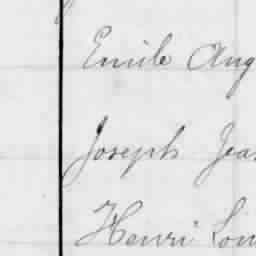 Emile Aug
Joseph Jea
Henri Lou